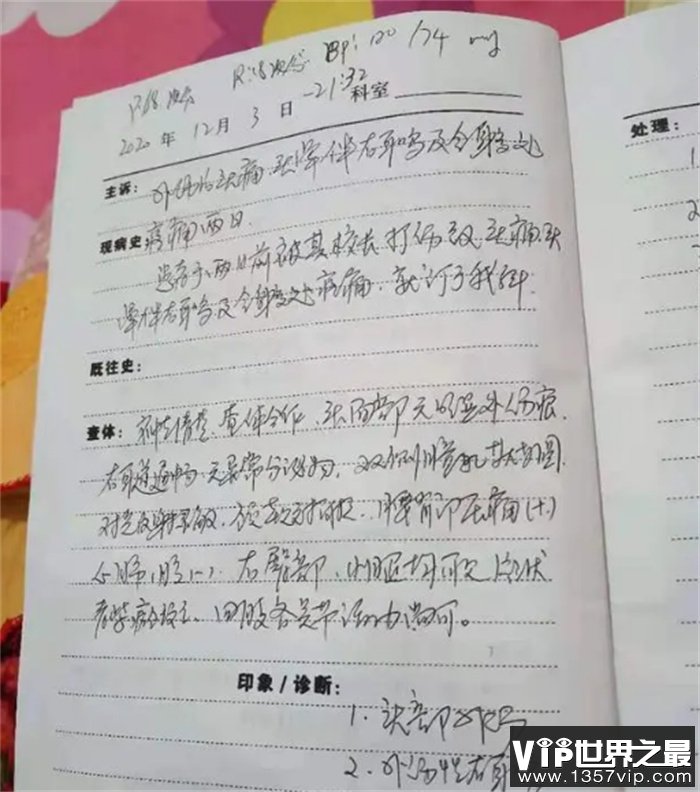 P:68次/分 R:18次/分 BP:120/74 mg
2020年12月3日 -21:32 科室
主诉: 外伤后头痛、头晕伴右耳鸣及全身多处
疼痛两日.
现病史
患者于两日前被其校长打伤致头痛、头
晕伴右耳鸣及全身多处疼痛, 就诊于我科.
既往史:
查体: 神志清楚, 查体合作, 头面部无明显外伤痕,
右耳道通畅, 无异常分泌物, 双侧瞳孔等大等圆,
对光反射灵敏, 颈软无抵抗, 腰背部压痛(+)
心肺腹(-). 右臀部, 均可见片状
青紫瘀斑, 四肢各关节活动尚可。
印象/诊断:
1. 头部外伤
2. 外伤性右耳
处理:
1
2
VIP世界之最
www.1357vip.com